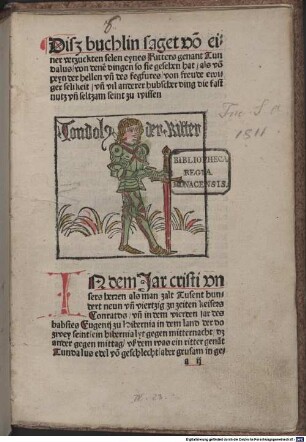 Disz buchlin saget võ ei-
ner verzuckten selen eynes Ritters genant Tun
dalus/ von denē dingen so sie gesehen hat/ als vō
peyn der hellen vñ des fegfures von freude ewi-
ger selikeit/ vñ vil anderer hubscher ding die fast
nutz vñ seltzam seint zu wissen
Tondolꝰ der Ritter
BIBLIOTHECA
REGIA
MONACENSIS.
IN dem Jar cristi vn
sers heren als man zalt Tusent hun
dert neun vñ viertzig zu zeiten keisers
Conradus/ vñ in dem vierden iar des
babstes Eugenij zu hibernia in dem land der do
zwey seint/ ein hibernia lyt gegen mitternacht/ dz
ander gegen mittag/ vß dem was ein ritter genāt
Tundalus edel vō geschlecht/ aber grusam in ge-
a ij